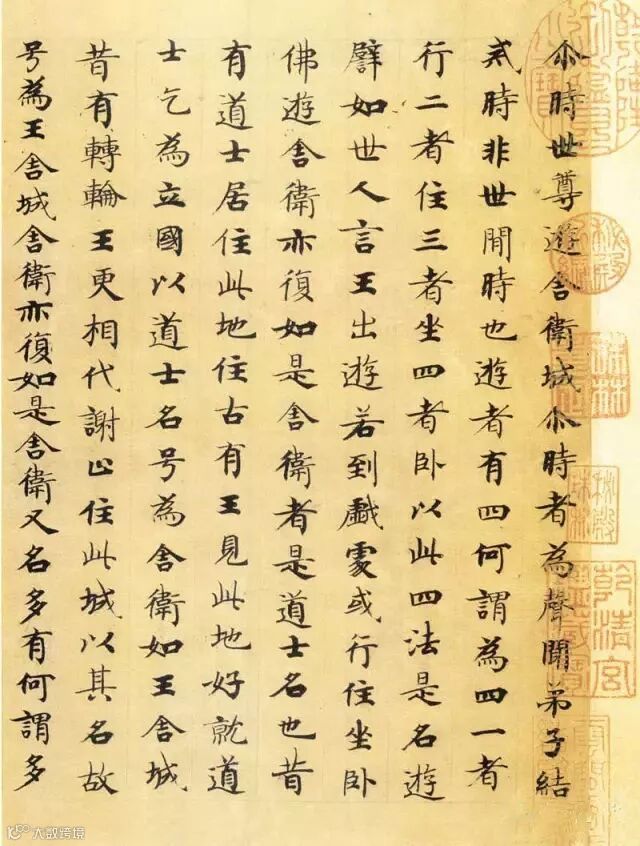 尒時世尊遊舍衛城尒時者為聲聞弟子結
戒時非世間時也遊者有四何謂為四一者
行二者住三者坐四者卧以此四法是名遊
譬如世人言王出遊若到戲處或行住坐卧
佛遊舍衛亦復如是舍衛者是道士名也昔
有道士居住此地住古有王見此地好就道
士乞為立國以道士名号為舍衛如王舍城
昔有轉輪王更相代謝止住此城以其名故
号為王舍城舍衛亦復如是舍衛又名多有何謂多
乾清宮
鑒藏寶
大数跨境